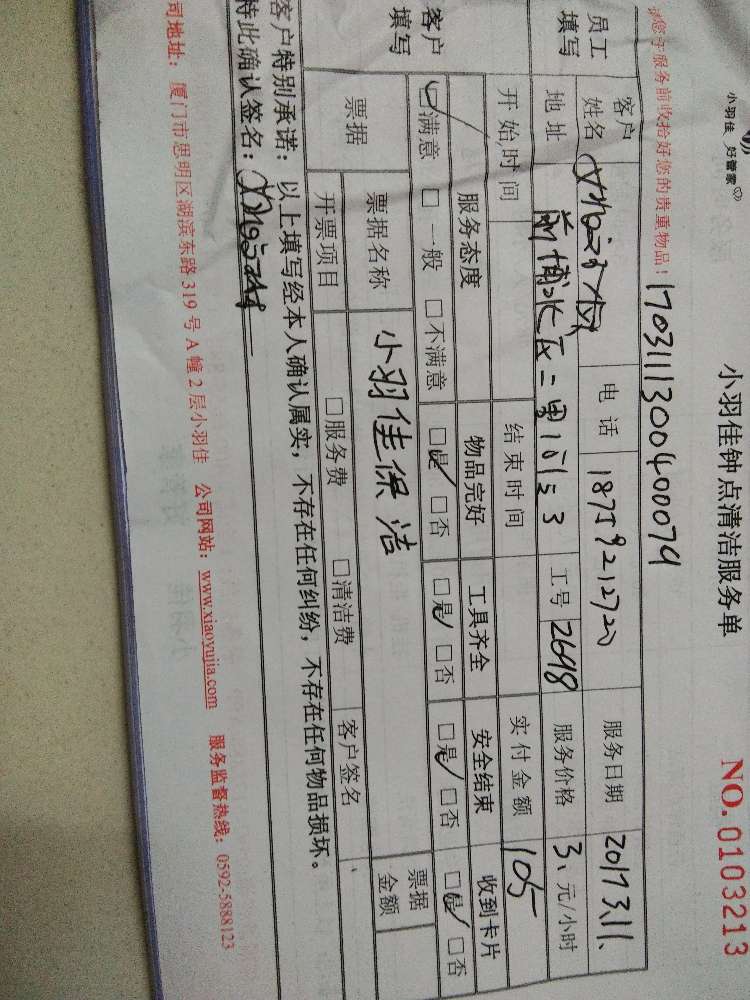 小羽佳 好管家
小羽佳钟点清洁服务单
NO.0103213
请您于服务前收拾好您的贵重物品!
17031113004000074
员工填写
客户姓名
电话 18759212720
服务日期 2017 3.11.
地址
工号 2698
服务价格 3、元/小时
开始时间
结束时间
实付金额 105
客户填写
服务态度 物品完好 工具齐全 安全结束 收到卡片
☑满意 □一般 □不满意 ☑是 □否 ☑是 □否 ☑是 □否 ☑是 □否
票据
票据名称 小羽佳保洁
票据金额
开票项目 □服务费 □清洁费 客户签名
客户特别承诺:以上填写经本人确认属实,不存在任何纠纷,不存在任何物品损坏。
特此确认签名:
司地址:厦门市思明区湖滨东路319号A幢2层小羽佳 公司网站:www.xiaoyujia.com 服务监督热线:0592-5888123